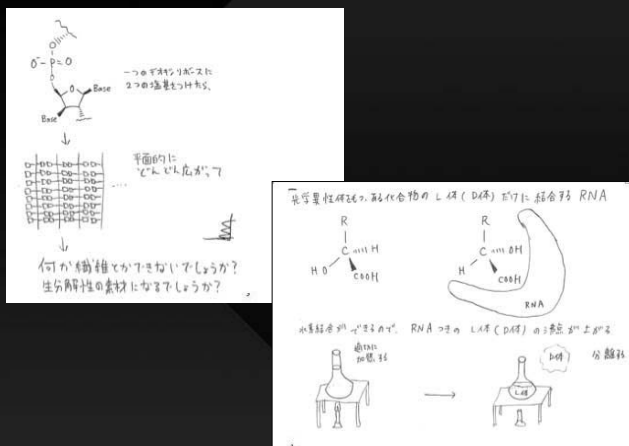 O
O⁻ P=O
O
O Base
Base
一つのデオキシリボースに
2つの塩基をつけたら、
平面的に
どんどん広がって
何か繊維とかできないでしょうか?
生分解性の素材になるでしょうか?
光学異性体をもつ、ある化合物の L体(D体)だけに結合する RNA
R
C H
HO COOH
R
C OH
H COOH
RNA
水素結合ができるので、RNAつきの L体(D体)の沸点が上がる
加熱する
D体
L体
分離する